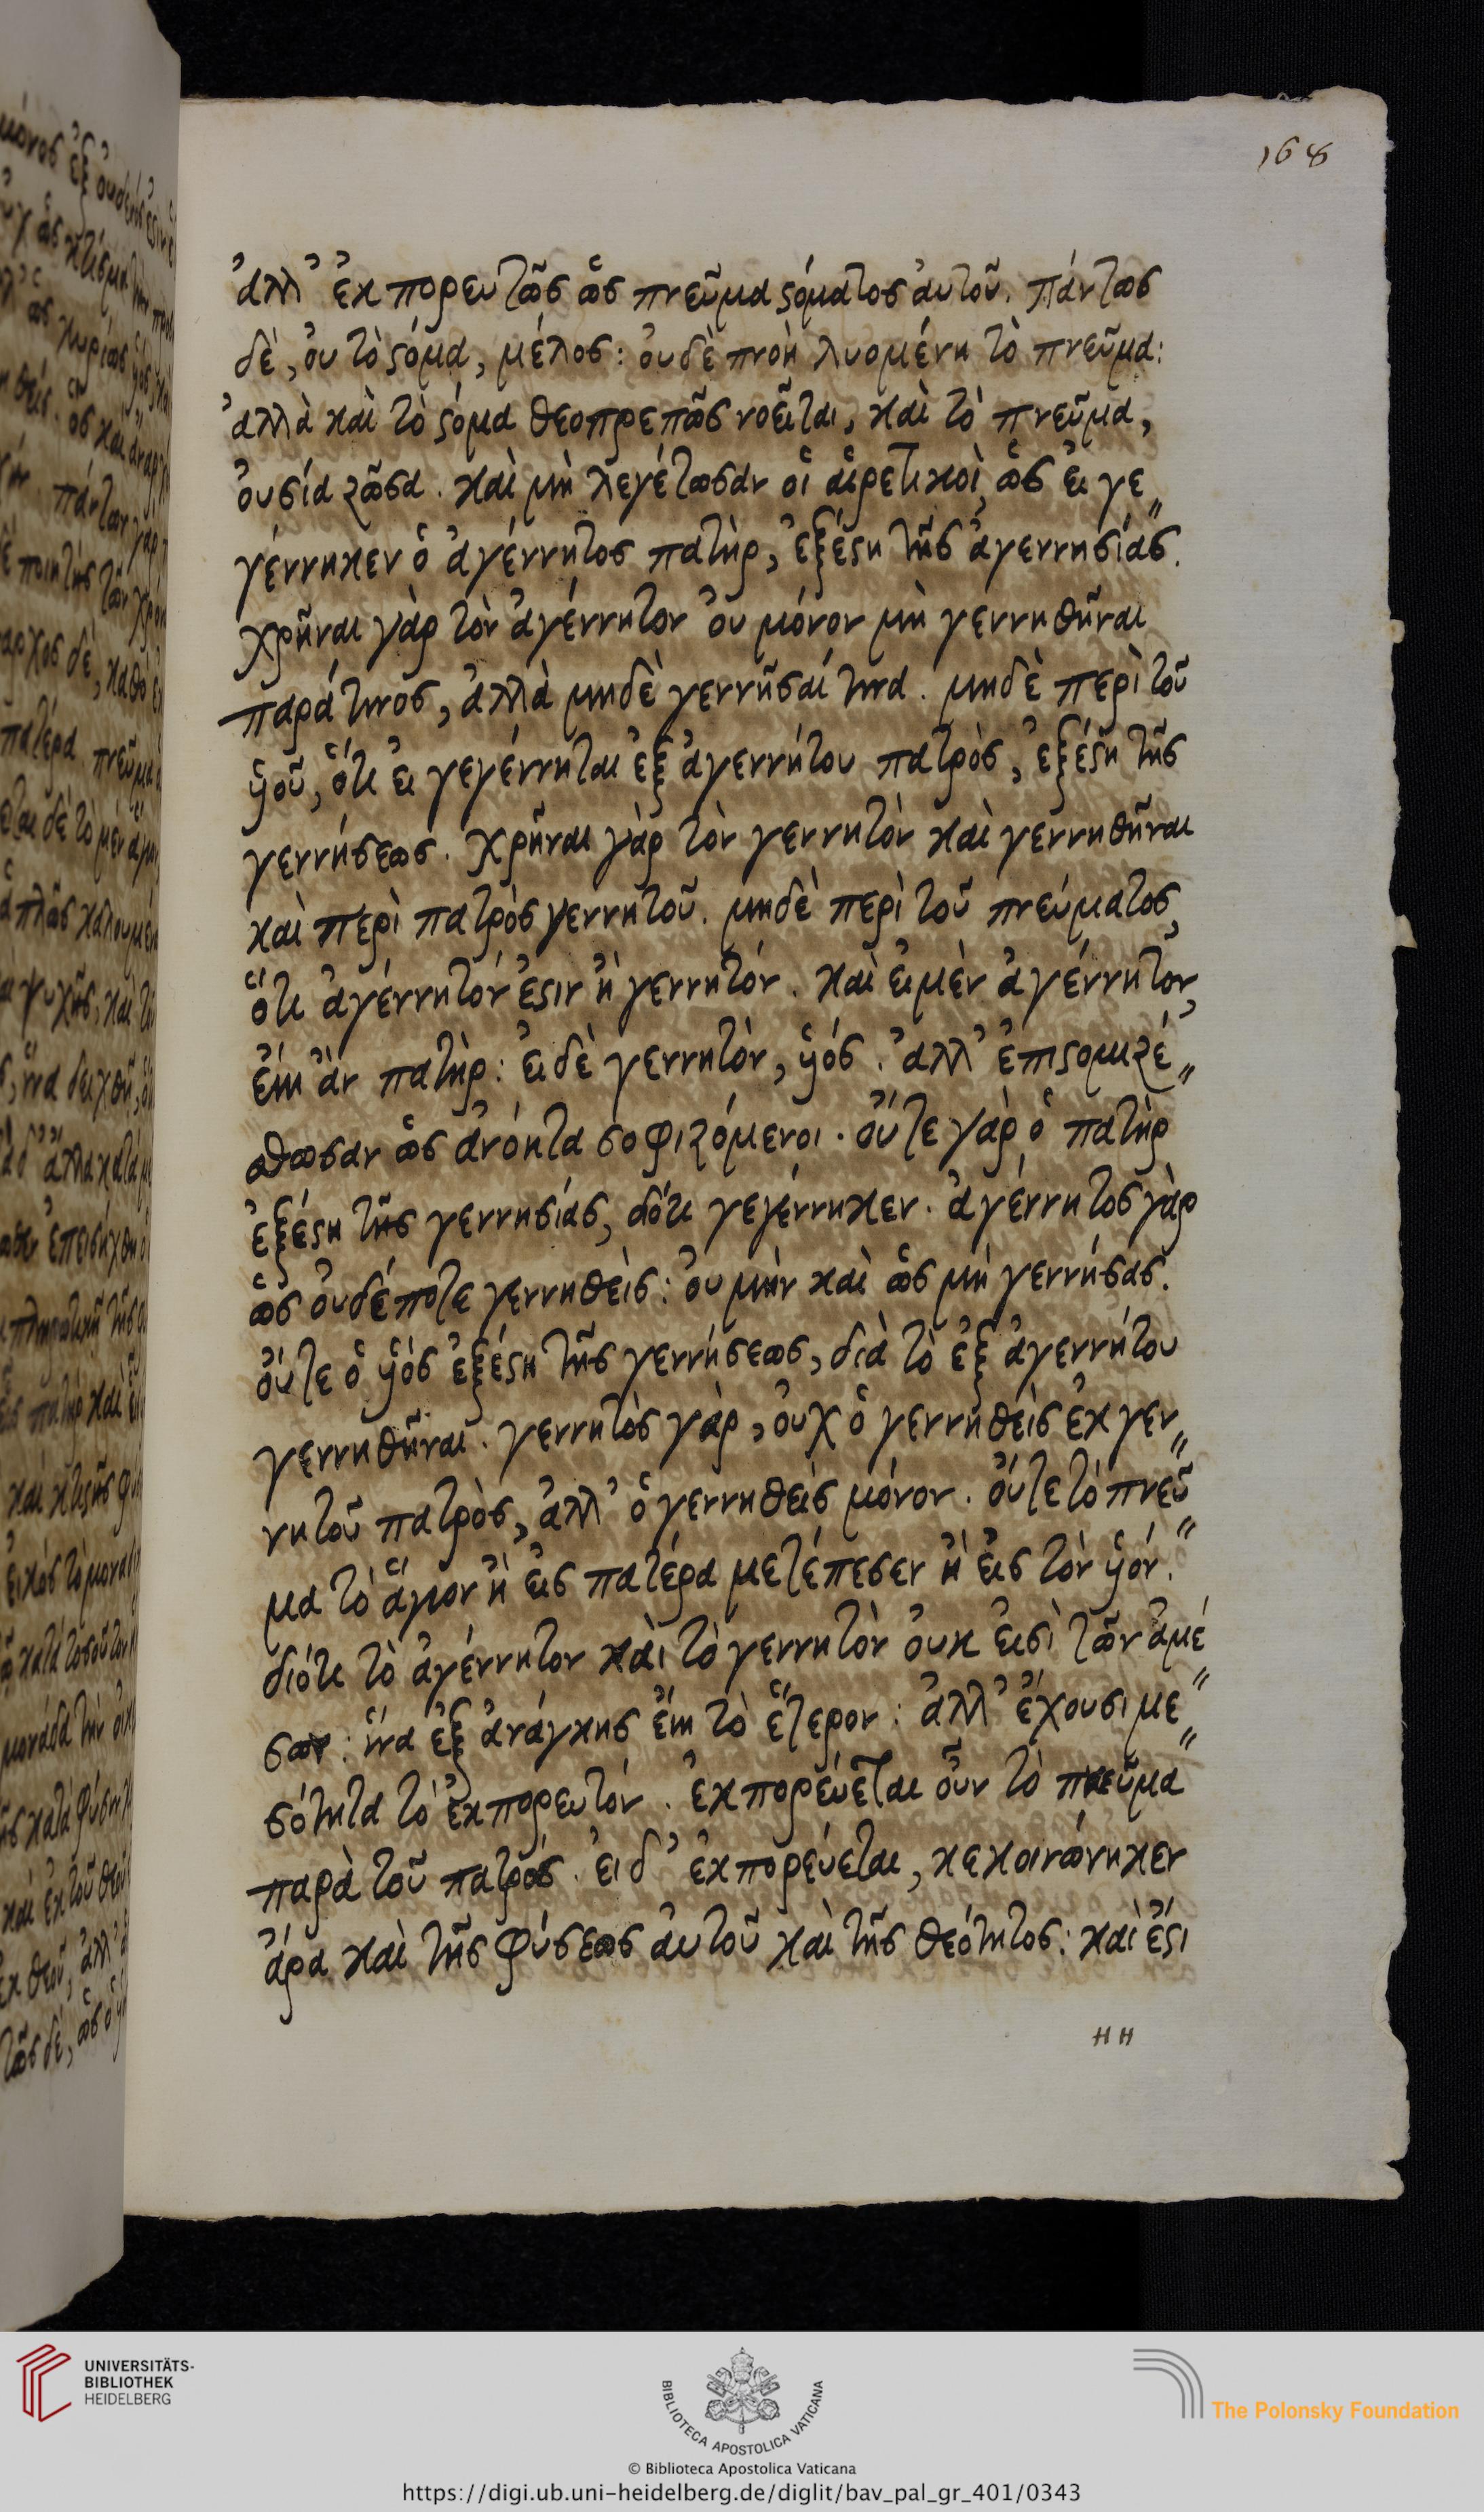 168
ἀλλ' ἐκπορευτῶς ὡς πνεῦμα ϛόματος ἀυτοῦ. πάντως
δὲ, ὀυ τὸ ϛόμα, μέλος: ὀυδὲ πνοὴ λυομένη τὸ πνεῦμα:
ἀλλὰ καὶ τὸ ϛόμα θεοπρεπῶς νοεῖται, καὶ τὸ πνεῦμα,
ὀυσία ζῶσα. καὶ μὴ λεγέτωσαν οἱ ἁιρετικοὶ, ὡς ἐι γε〃
γέννηκεν ὁ ἀγέννητος πατὴρ, ἐξέϛη τῆς ἀγεννησίας.
χρῆναι γὰρ τὸν ἀγέννητον ὀυ μόνον μὴ γεννηθῆναι
παρά τινος, ἀλλὰ μηδὲ γεννῆσαί τινα. μηδὲ περὶ τοῦ
ὑιοῦ, ὅτι ἐι γεγέννηται ἐξ ἀγεννήτου πατρὸς, ἐξέϛη τῆς
γεννήσεως. χρῆναι γὰρ τὸν γεννητὸν καὶ γεννηθῆναι
καὶ περὶ πατρὸς γεννητοῦ. μηδὲ περὶ τοῦ πνεύματος,
ὅτι ἀγέννητόν ἐϛιν ἢ γεννητόν. καὶ ἐι μὲν ἀγέννητον,
ἔιη ἂν πατὴρ: ἐι δὲ γεννητὸν, ὑιός. ἀλλ' ἐπιϛομιζέ〃
σθωσαν ὡς ἀνόητα σοφιζόμενοι. ὄυτε γὰρ ὁ πατὴρ
ἐξέϛη τῆς γεννησίας, διότι γεγέννηκεν. ἀγέννητος γὰρ
ὡς ὀυδέποτε γεννηθεὶς: ὀυ μὴν καὶ ὡς μὴ γεννήσας.
ὄυτε ὁ ὑιὸς ἐξέϛη τῆς γεννήσεως, διὰ τὸ ἐξ ἀγεννήτου
γεννηθῆναι. γεννητὸς γὰρ, ὀυχ ὁ γεννηθεὶς ἐκ γεν〃
νητοῦ πατρὸς, ἀλλ' ὁ γεννηθεὶς μόνον. ὄυτε τὸ πνεῦ〃
μα τὸ ἅγιον ἢ ἐις πατέρα μετέπεσεν ἢ ἐις τὸν ὑιόν.
διότι τὸ ἀγέννητον καὶ τὸ γεννητὸν ὀυκ ἐισὶ τῶν ἀμέ〃
σων: ἵνα ἐξ ἀνάγκης ἔιη τὸ ἕτερον: ἀλλ' ἔχουσι με〃
σότητα τὸ ἐκπορευτόν. ἐκπορεύεται ὀῦν τὸ πνεῦμα
παρὰ τοῦ πατρός. ἐι δ' ἐκπορεύεται, κεκοινώνηκεν
ἄρα καὶ τῆς φύσεως ἀυτοῦ καὶ τῆς θεότητος: καὶ ἔϛι
HH
UNIVERSITÄTS-
BIBLIOTHEK
HEIDELBERG
BIBLIOTECA APOSTOLICA VATICANA
The Polonsky Foundation
© Biblioteca Apostolica Vaticana
https://digi.ub.uni-heidelberg.de/diglit/bav_pal_gr_401/0343